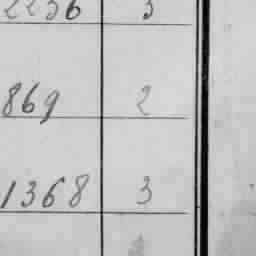 2236 3
869 2
1368 3